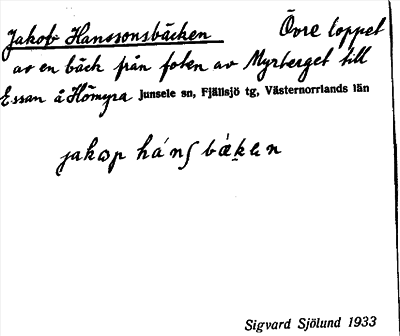 Jakob Hanssonsbäcken Övre loppet
av en bäck från foten av Myrberget till
Essan å Hömyra Junsele sn, Fjällsjö tg, Västernorrlands län
jakɷp hánʃ bɛ́ḵen
Sigvard Sjölund 1933